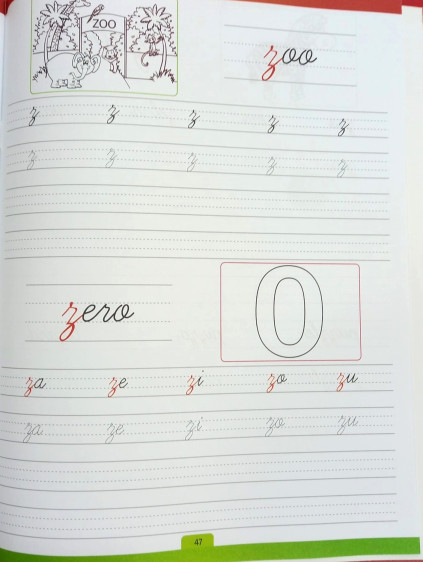 ZOO
zoo
z z z z z
z z z z z
zero
0
za ze zi zo zu
za ze zi zo zu
47